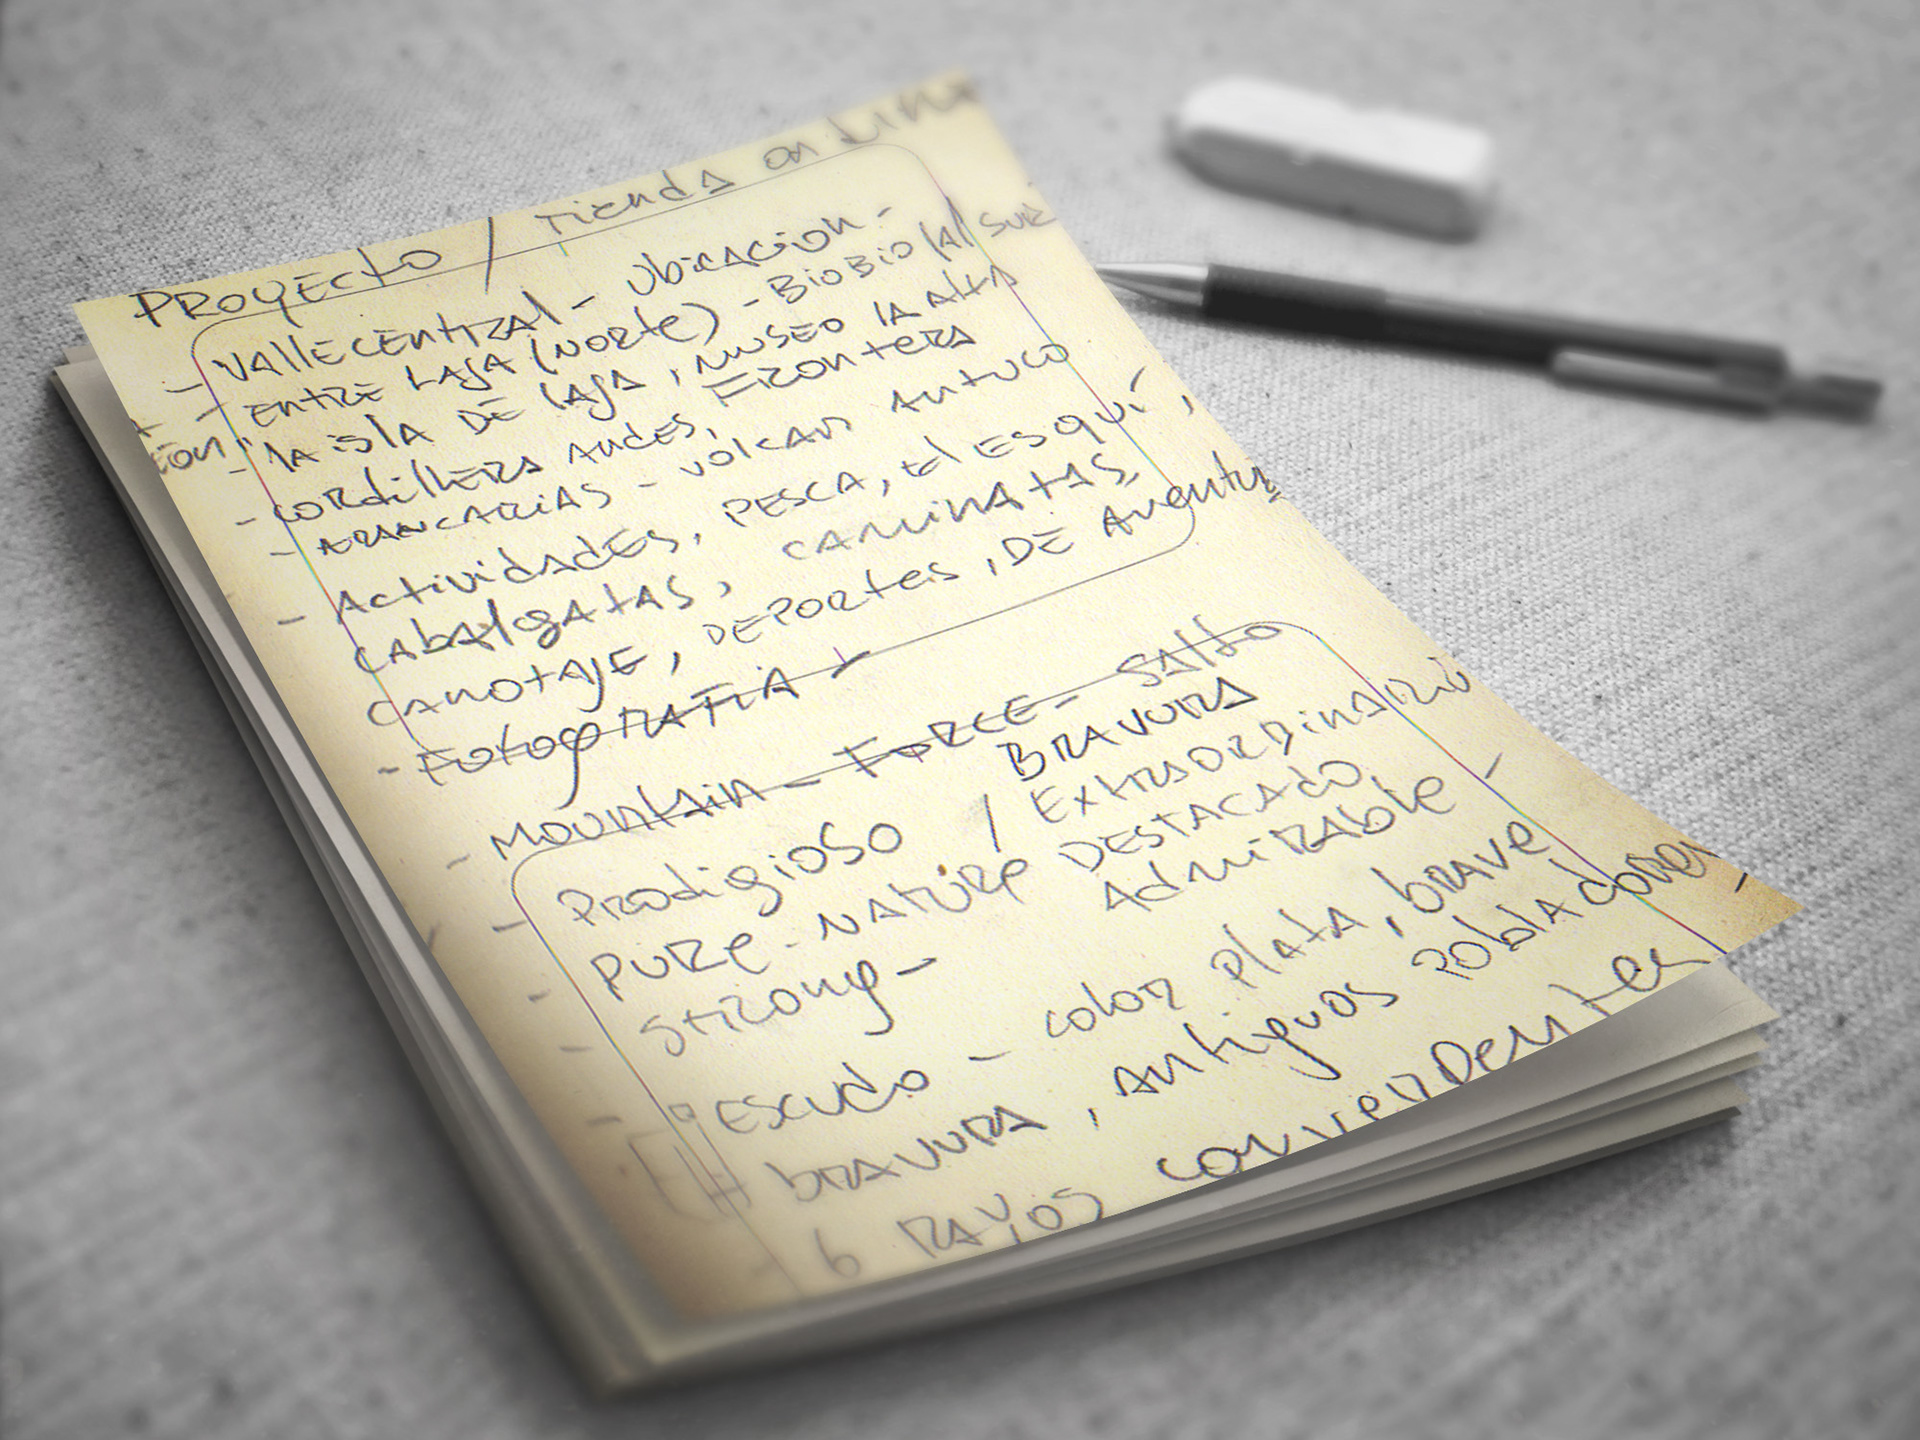 PROYECTO / Tienda on Line
- VALLE CENTRAL - Ubicacion -
- ENTRE LAJA (NORTE) - BioBio (Al SUR
- "la isla DE laja, MUSEO la Alta
FRONTERA
- cordillera Andes,
- ARAUCARIAS - volcan Antuco
- Actividades, PESCA, El ESQUí,
cabalgatas, caminatas,
canotaje, DEPORTES, DE Aventur
- Fotografia
- Mountain - FORCE - Salto
Prodigioso / BRAVURA
Extraordinario
pure - nature DESTACADO,
strong - Admirable -
Escudo - color plata, brave
bravura, Antiguos pobladores
6 rayos converdentes